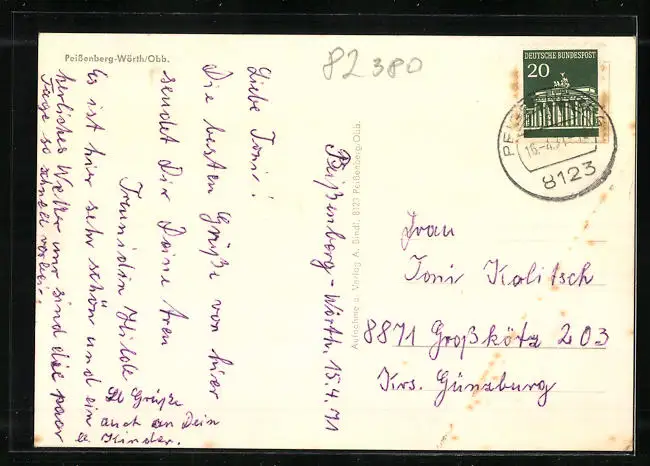 Peißenberg-Wörth/Obb.
82380
DEUTSCHE BUNDESPOST
20
16.-4.71
8123
Peißenberg-Wörth. 15.4.71
Liebe Toni!
Die besten Grüße von hier
sendet Dir Deine treu
Freundin Hilde
Es ist hier sehr schön und ein
herrliches Wetter nur sind die paar
Tage so schnell vorbei.
Lb Grüße
auch an Dein
Kinder.
Aufnahme u. Verlag A. Bindl, 8123 Peißenberg/Obb.
Frau
Toni Kalitsch
8871 Großkötz 203
Krs. Günzburg